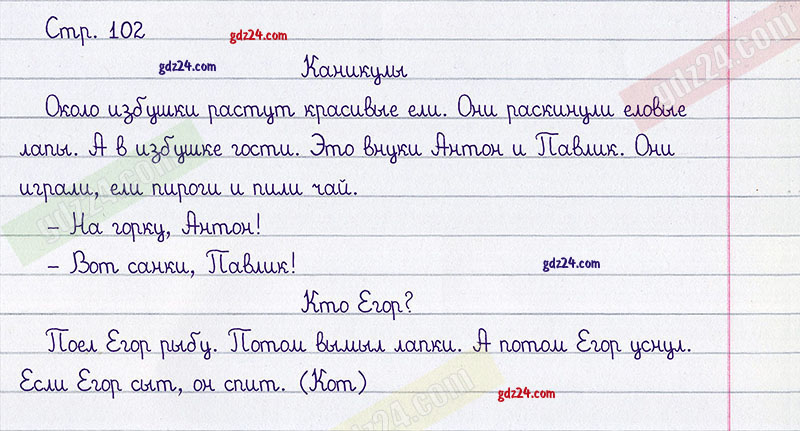 Стр. 102
gdz24.com
gdz24.com
Каникулы
Около избушки растут красивые ели. Они раскинули еловые
лапы. А в избушке гости. Это внуки Антон и Павлик. Они
играли, ели пироги и пили чай.
– На горку, Антон!
– Вот санки, Павлик!
gdz24.com
Кто Егор?
Поел Егор рыбу. Потом вымыл лапки. А потом Егор уснул.
Если Егор сыт, он спит. (Кот)
gdz24.com
gdz24.com
gdz24.com
gdz24.com